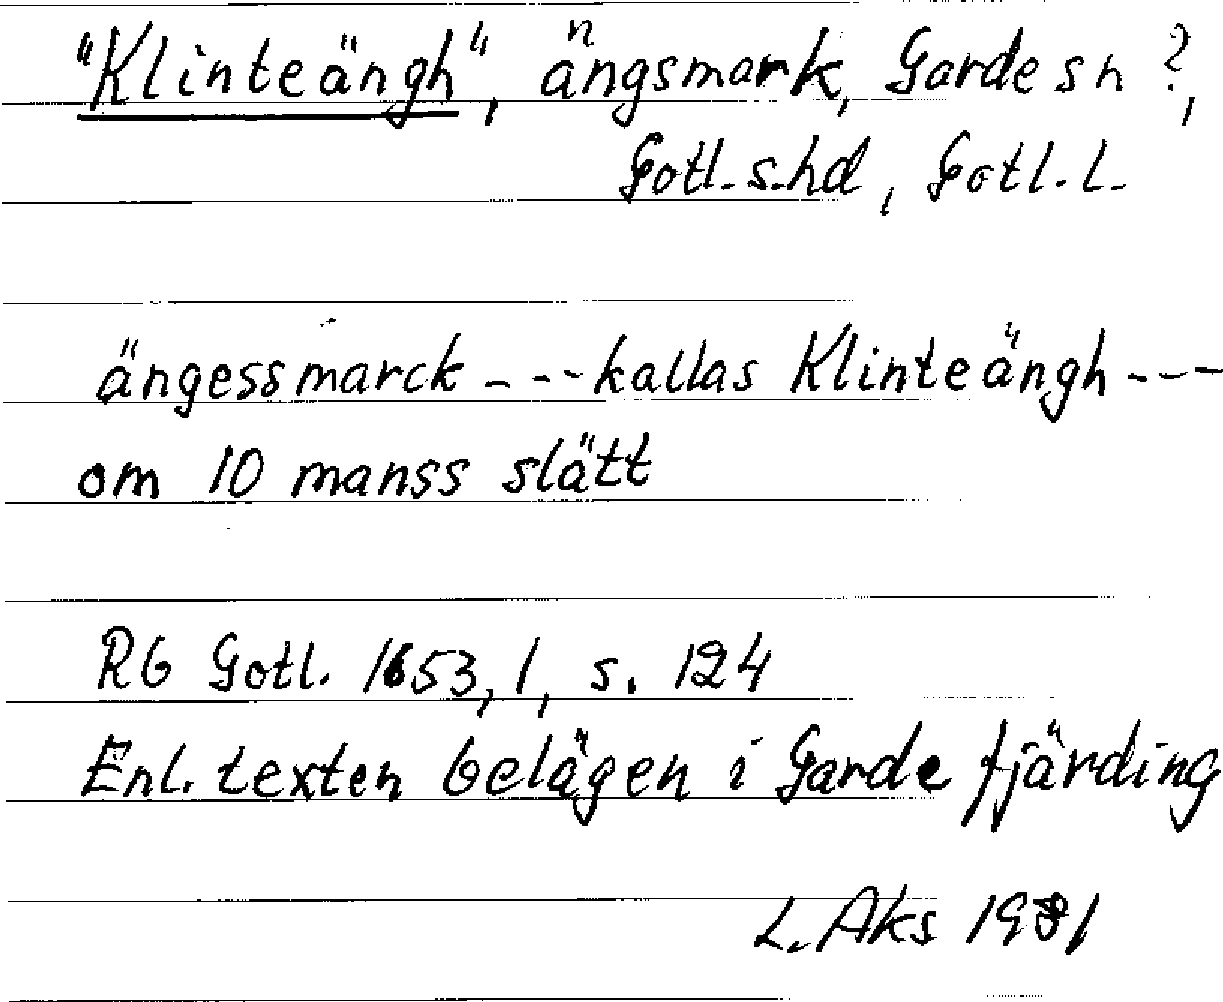 "Klinteängh", ängsmark, Garde sn ?,
Gotl. s. hd, Gotl. l.
ängessmarck --- kallas Klinteängh ---
om 10 manss slätt
RG Gotl. 1653, 1, s. 124
Enl. texten belägen i Garde fjärding
L. Aks 1981